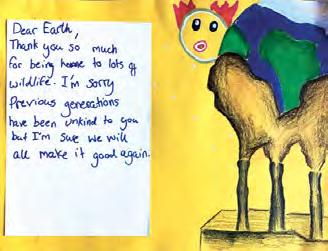 Dear Earth,
Thank you so much
for being home to lots of
wildlife. I'm sorry
Previous generations
have been unkind to you
but I'm sure we will
all make it good again.